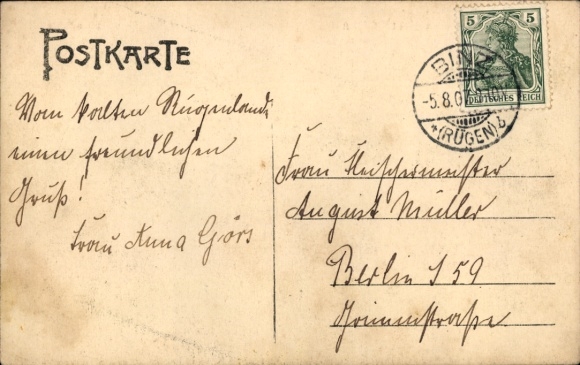 POSTKARTE
5 5
DEUTSCHES REICH
BINZ
-5.8.0
*(RÜGEN) b
Vom kalten Rügenland
einen freundlichen
Gruß!
Frau Anna Görs
Frau Fleischermeister
August Müller
Berlin S 59
Grimmstraße